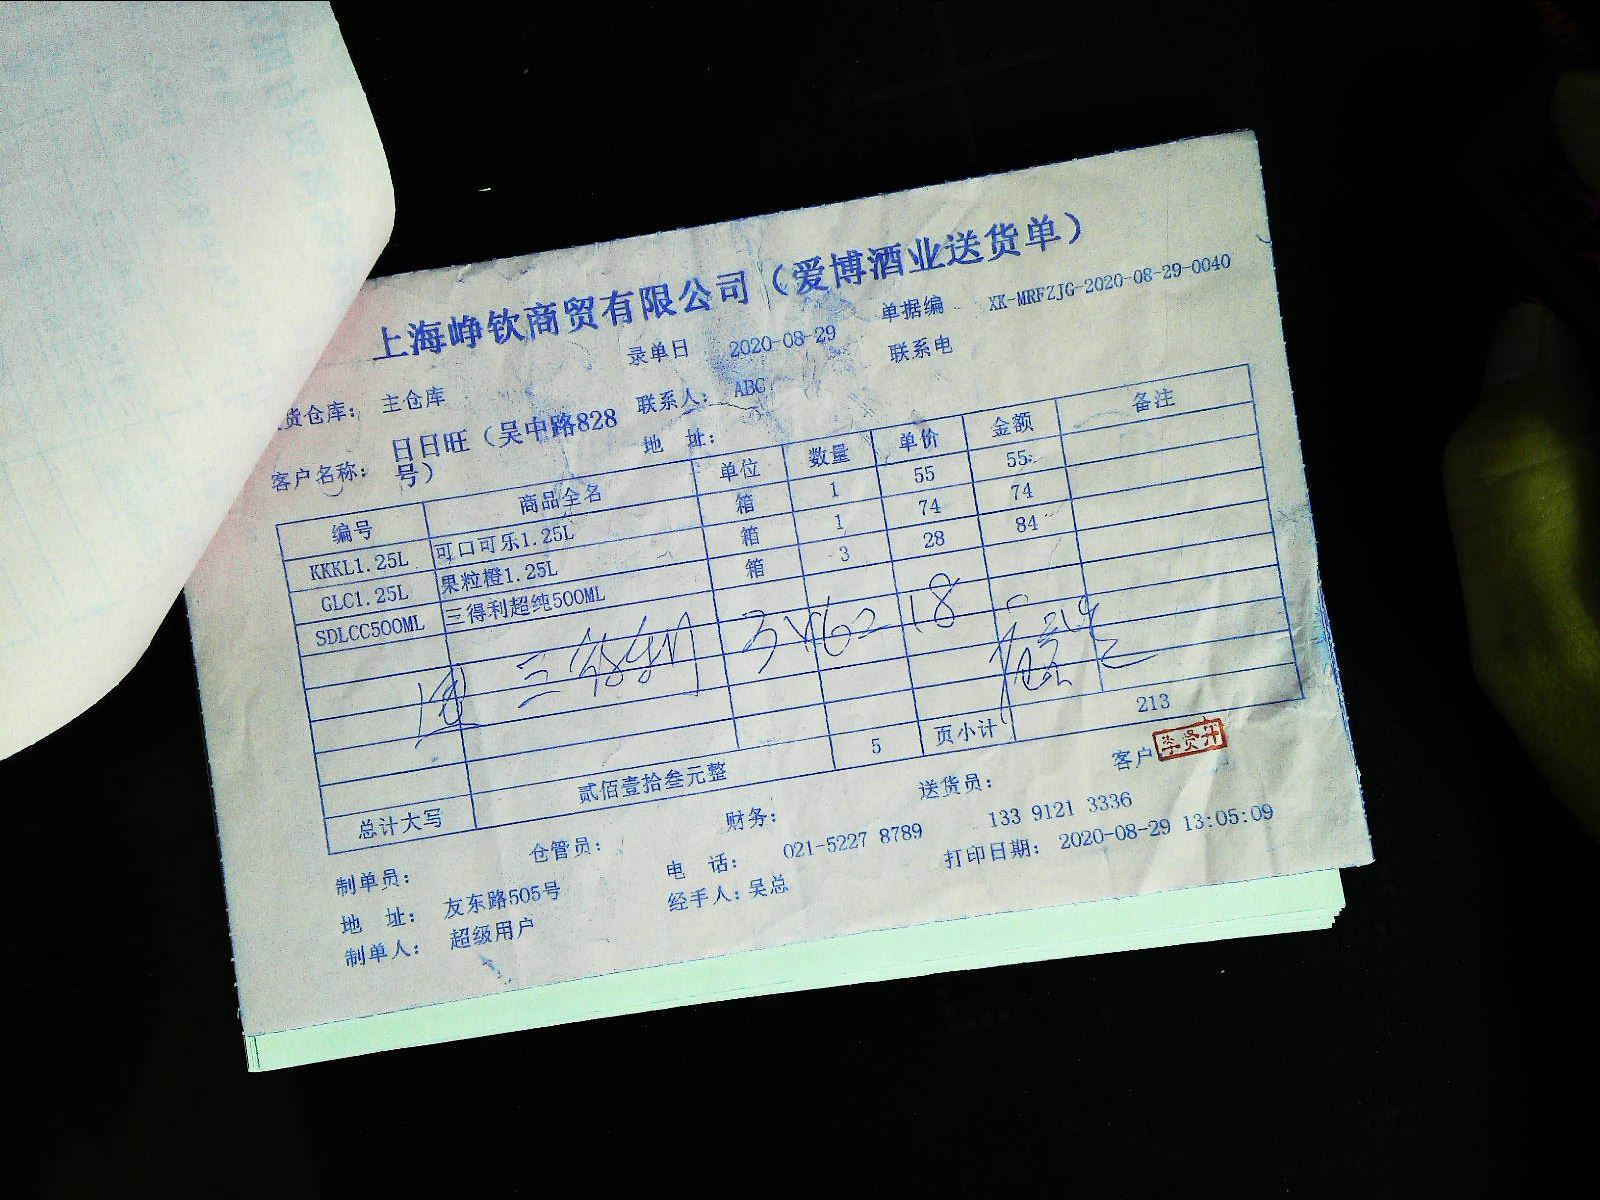 上海峥钦商贸有限公司（爱博酒业送货单）
录单日 2020-08-29 单据编 XK-MRFZJG-2020-08-29-0040
货仓库： 主仓库 联系人： ABC 联系电
客户名称： 日日旺（吴中路828号） 地 址：
编号 商品全名 单位 数量 单价 金额 备注
KKKL1.25L 可口可乐1.25L 箱 1 55 55
GLC1.25L 果粒橙1.25L 箱 1 74 74
SDLCC500ML 三得利超纯500ML 箱 3 28 84
5 页小计 213
总计大写 贰佰壹拾叁元整
制单员： 仓管员： 财务： 送货员： 客户 李贤开
地 址： 友东路505号 电 话： 021-5227 8789 133 9121 3336
制单人： 超级用户 经手人：吴总 打印日期： 2020-08-29 13:05:09